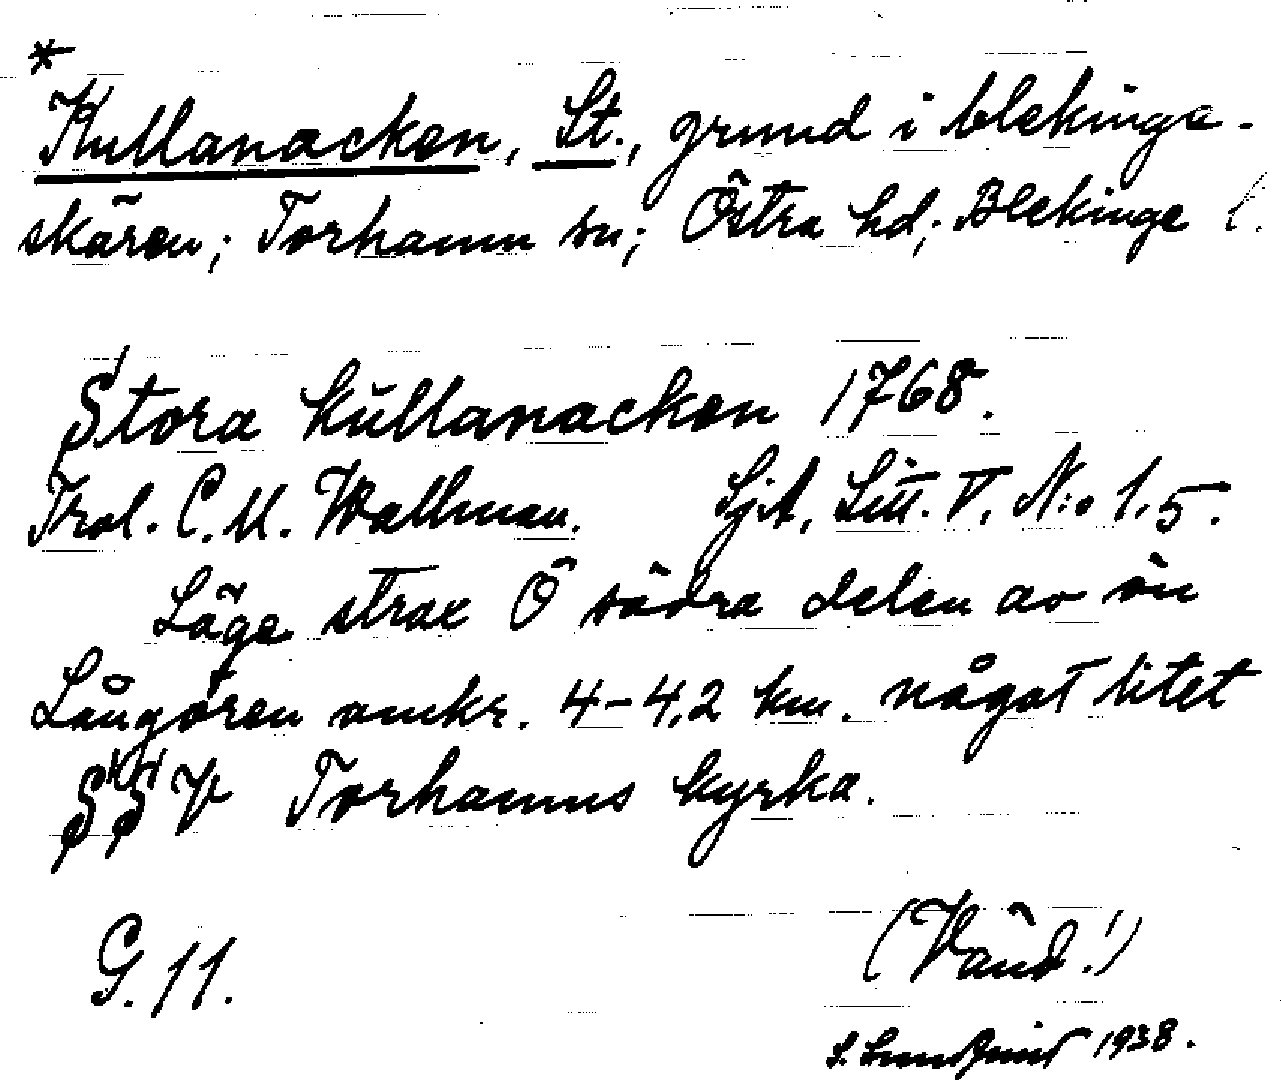 *
Kullanacken, St., grund i blekinge-
skären; Torhamn sn; Östra hd; Blekinge l.
Stora kullanacken 1768.
Trol. C. M. Wallman. SjA, Litt. T, N:o 1.5.
Läge strax Ö södra delen av ön
Långören omkr. 4-4,2 km. något litet
SSV Torhamns kyrka.
G. 11.
(Vänd!)
S. 1938.